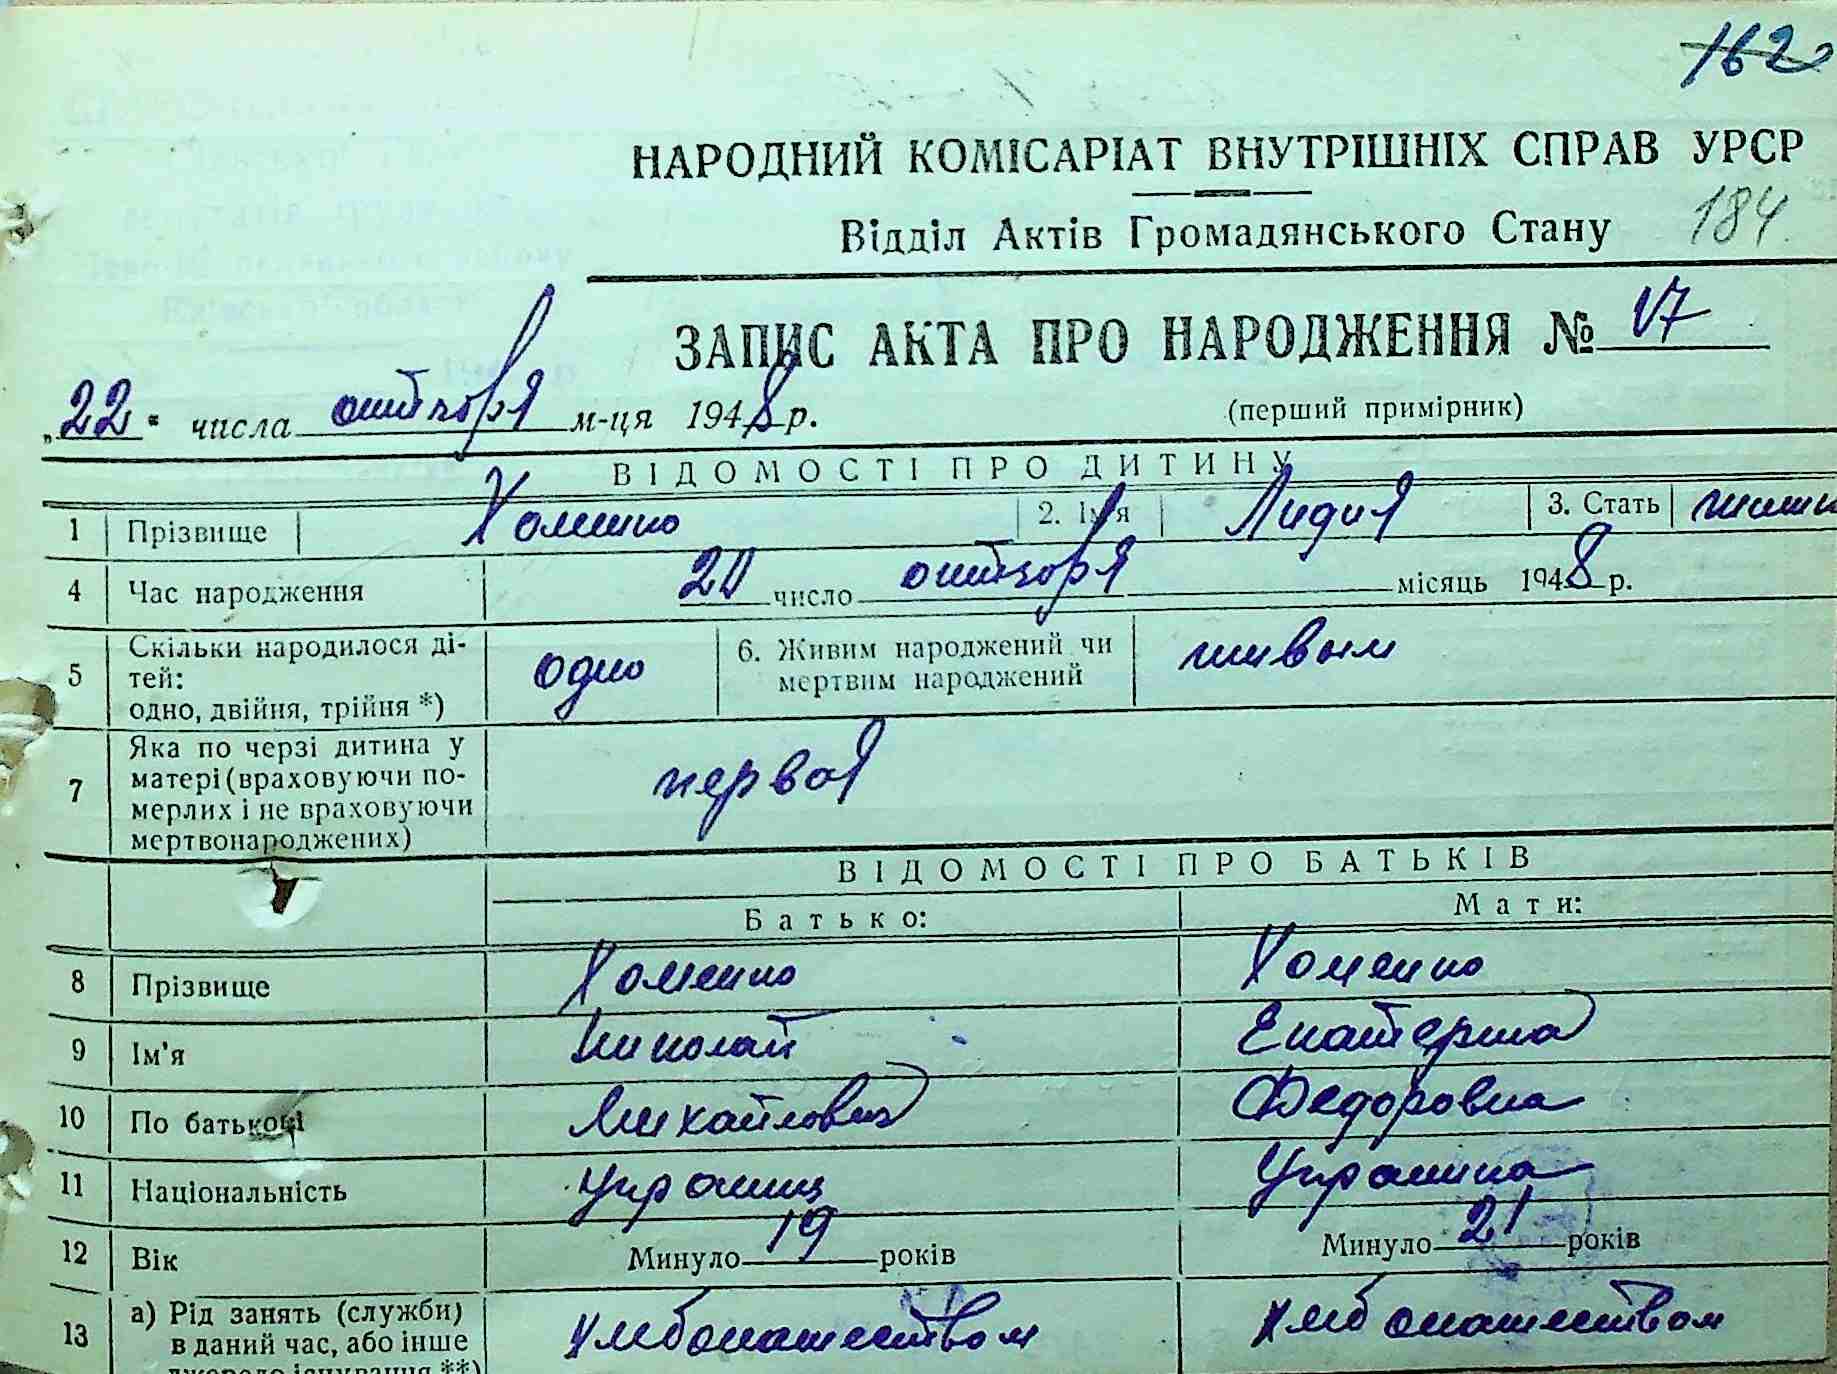 162
НАРОДНИЙ КОМІСАРІАТ ВНУТРІШНІХ СПРАВ УРСР
Відділ Актів Громадянського Стану 184
ЗАПИС АКТА ПРО НАРОДЖЕННЯ № 17
„22“ числа октября м-ця 1948 р. (перший примірник)
ВІДОМОСТІ ПРО ДИТИНУ
1 Прізвище Хоменко 2. Ім'я Лидия 3. Стать
4 Час народження 20 число октября місяць 1948 р.
5 Скільки народилося ді-
тей:
одно, двійня, трійня *) одно 6. Живим народжений чи
мертвим народжений живым
7 Яка по черзі дитина у
матері (враховуючи по-
мерлих і не враховуючи
мертвонароджених) первая
ВІДОМОСТІ ПРО БАТЬКІВ
Батько: Мати:
8 Прізвище Хоменко Хоменко
9 Ім'я Николай Екатерина
10 По батькові Михайлович Федоровна
11 Національність украинец Украинка
12 Вік Минуло 19 років Минуло 21 років
13 а) Рід занять (служби)
в даний час, або інше
джерело існування **) хлебопашеством хлебопашеством